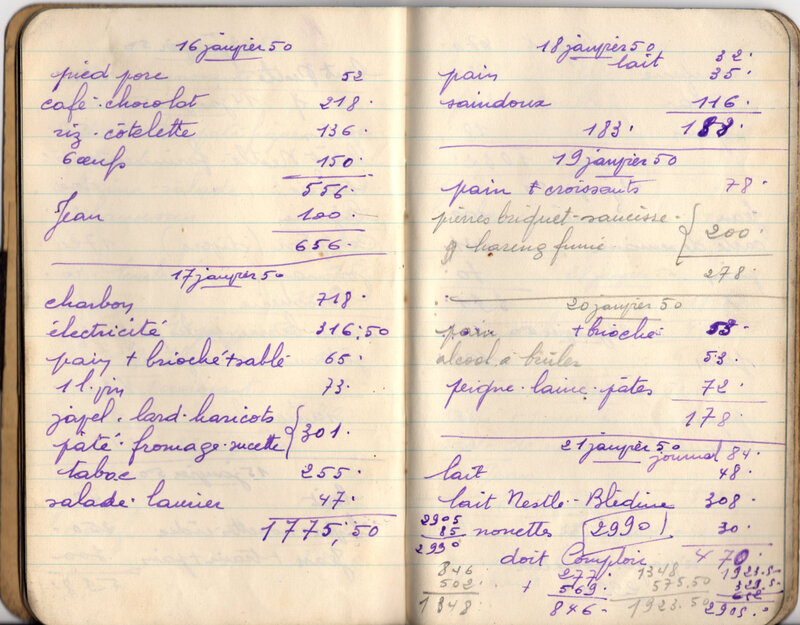 16 janvier 50
pied porc 52
café - chocolat 218.
riz - côtelette 136
6 œufs 150.
556.
Jean 100.
656.
17 janvier 50
charbon 718.
électricité 316;50
pain + brioché + sablé 65.
1 l. vin 73.
javel - lard - haricots
pâté - fromage - sucette 301.
tabac 255.
salade - laurier 47.
1775,50
18 janvier 50
lait 32.
pain 35.
saindoux 116.
183. 183.
19 janvier 50
pain + croissants 78.
pierres briquet - saucisse -
hareng fumé 200.
278
20 janvier 50
pain + brioché 53.
alcool à brûler 53.
peigne - laine - pâtes 72.
178.
21 janvier 50
journal 84.
lait 48.
lait Nestle - Blédine 308
2905
85
2990
nonettes 2990 30.
doit Comptoir 470.
846
502.
1348
277.
+ 569.
846.
1348
575,50
1923.50
1923.50
329,50
652
2905.